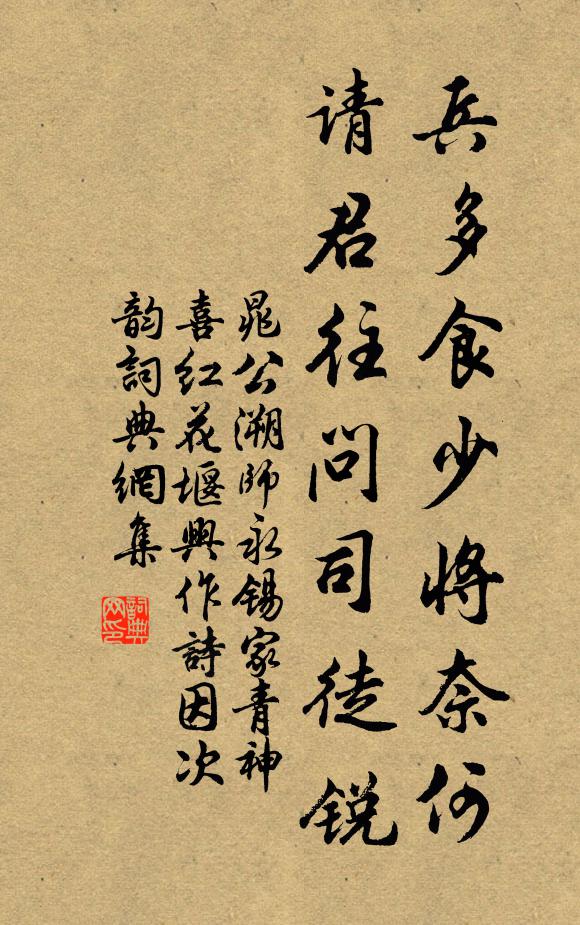 兵多食少将奈何
请君往问司徒锐
晁公溯師永锡家青神
喜红花堰興作詩因次
韵詞典網集
詞典网印